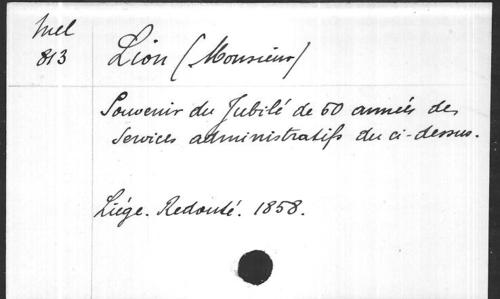 Mel
813
Lion (Monsieur)
Souvenir du Jubilé de 50 années de
Services administratifs du ci-dessus.
Liége. Redouté. 1858.